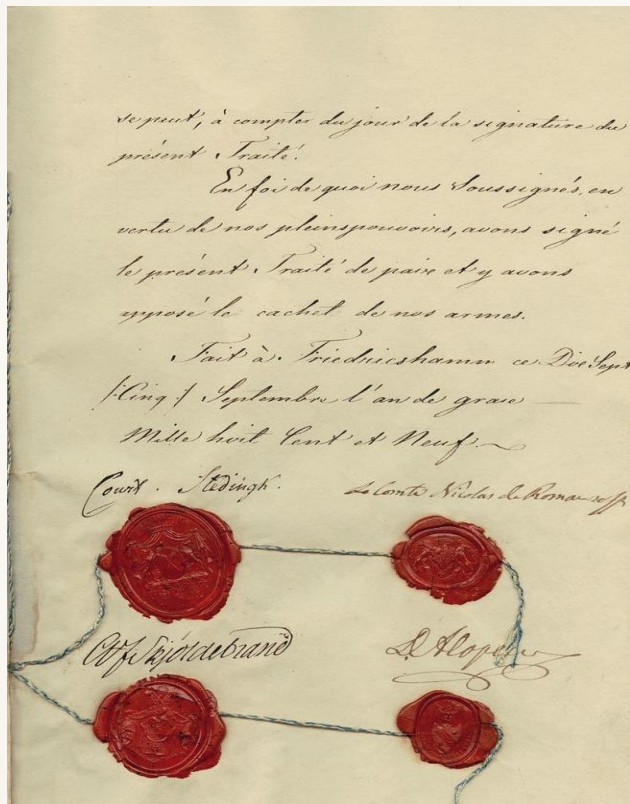 se peut, à compter du jour de la signature du
présent Traité.
En foi de quoi nous Soussignés, en
vertu de nos pleinspouvoirs, avons signé
le présent Traité de paix et y avons
apposé le cachet de nos armes.
Fait à Friedricshamm ce Dix Sept
/:Cinq:/ Septembre l'an de grace
Mille huit Cent et Neuf.
Court. Stedingk. Le Comte Nicolas de Romanzoff
Skjöldebrand D. Alopeus